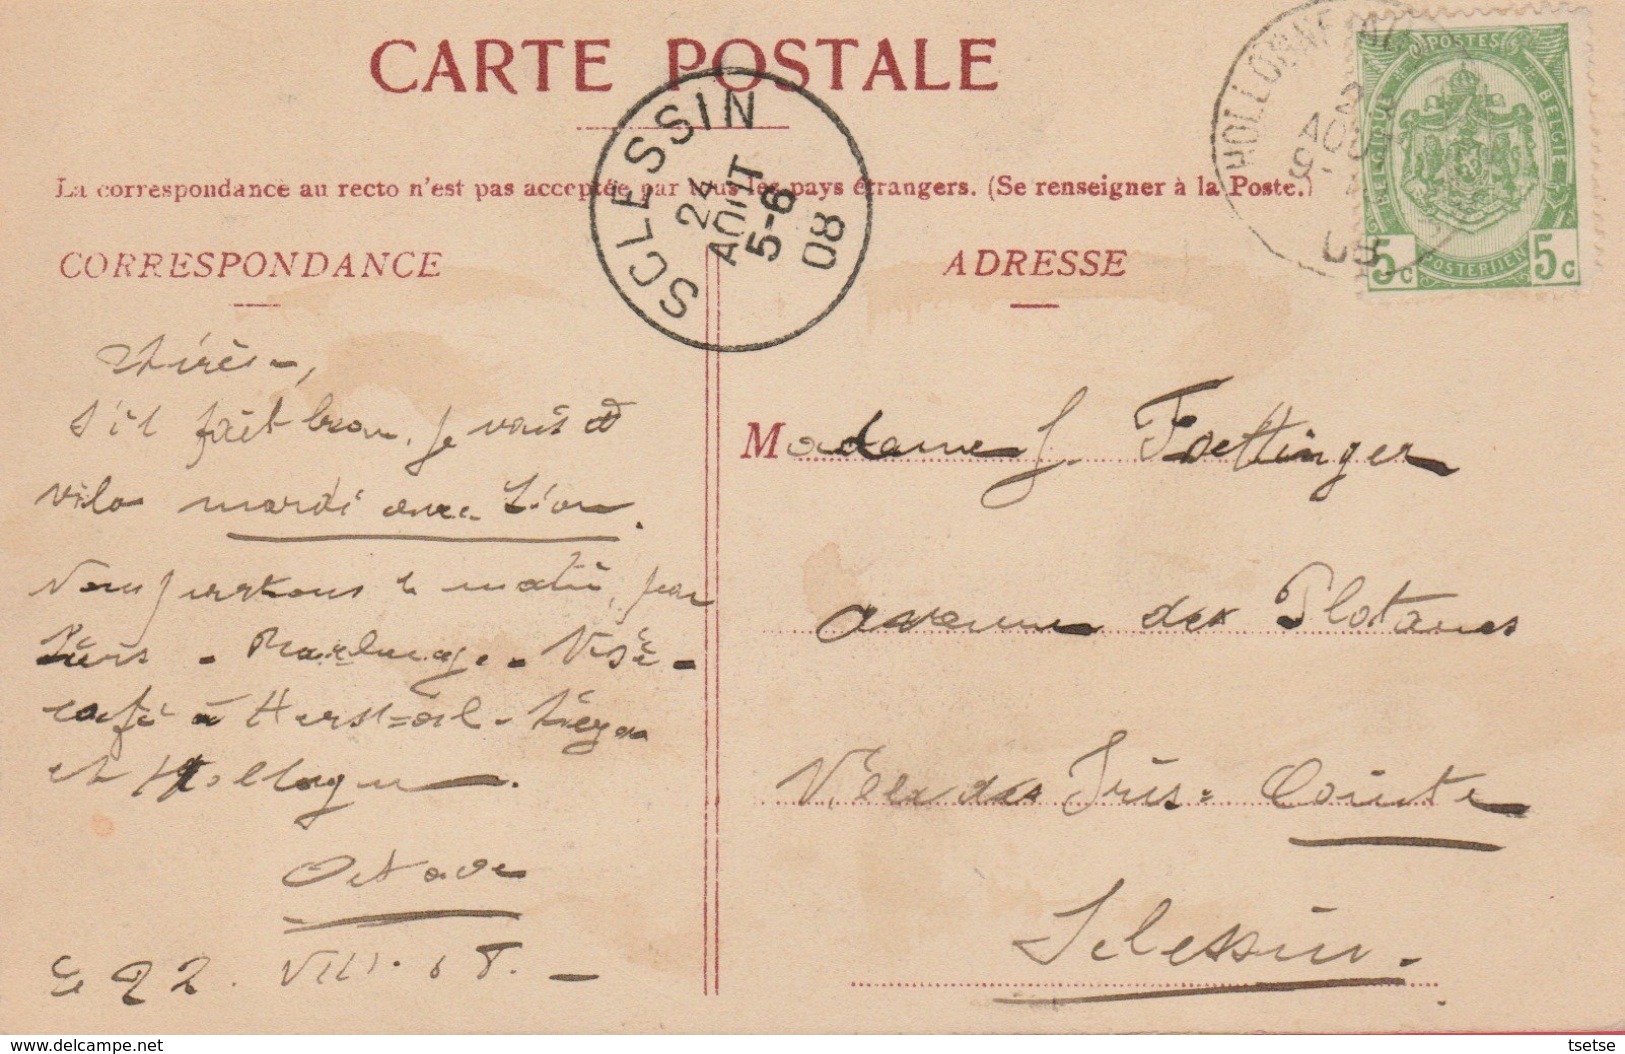 CARTE POSTALE
La correspondance au recto n'est pas acceptée par tous les pays étrangers. (Se renseigner à la Poste.)
CORRESPONDANCE
ADRESSE
SCLESSIN
24
AOUT
5-6
08
HOLLOGNE
AOUT
08
POSTES
BELGIQUE
BELGIE
POSTERIJEN
5c 5c
s'il fait beau. Je vais
vélo mardi avec Léon.
Nous partons le matin, par
Visé
café à Herstal - Liège
et Hollogne.
Octave
le 22. VIII. 08. -
Madame J. Foettinger
avenue des Platanes
Villa des Iris. Cointe
Sclessin.
http://www.delcampe.net
tsetse